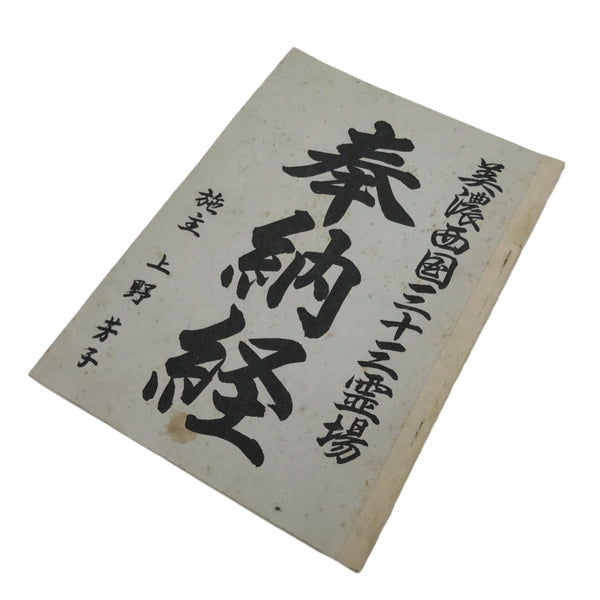 美濃西国三十三霊場
奉納経
施主 上野 芳子